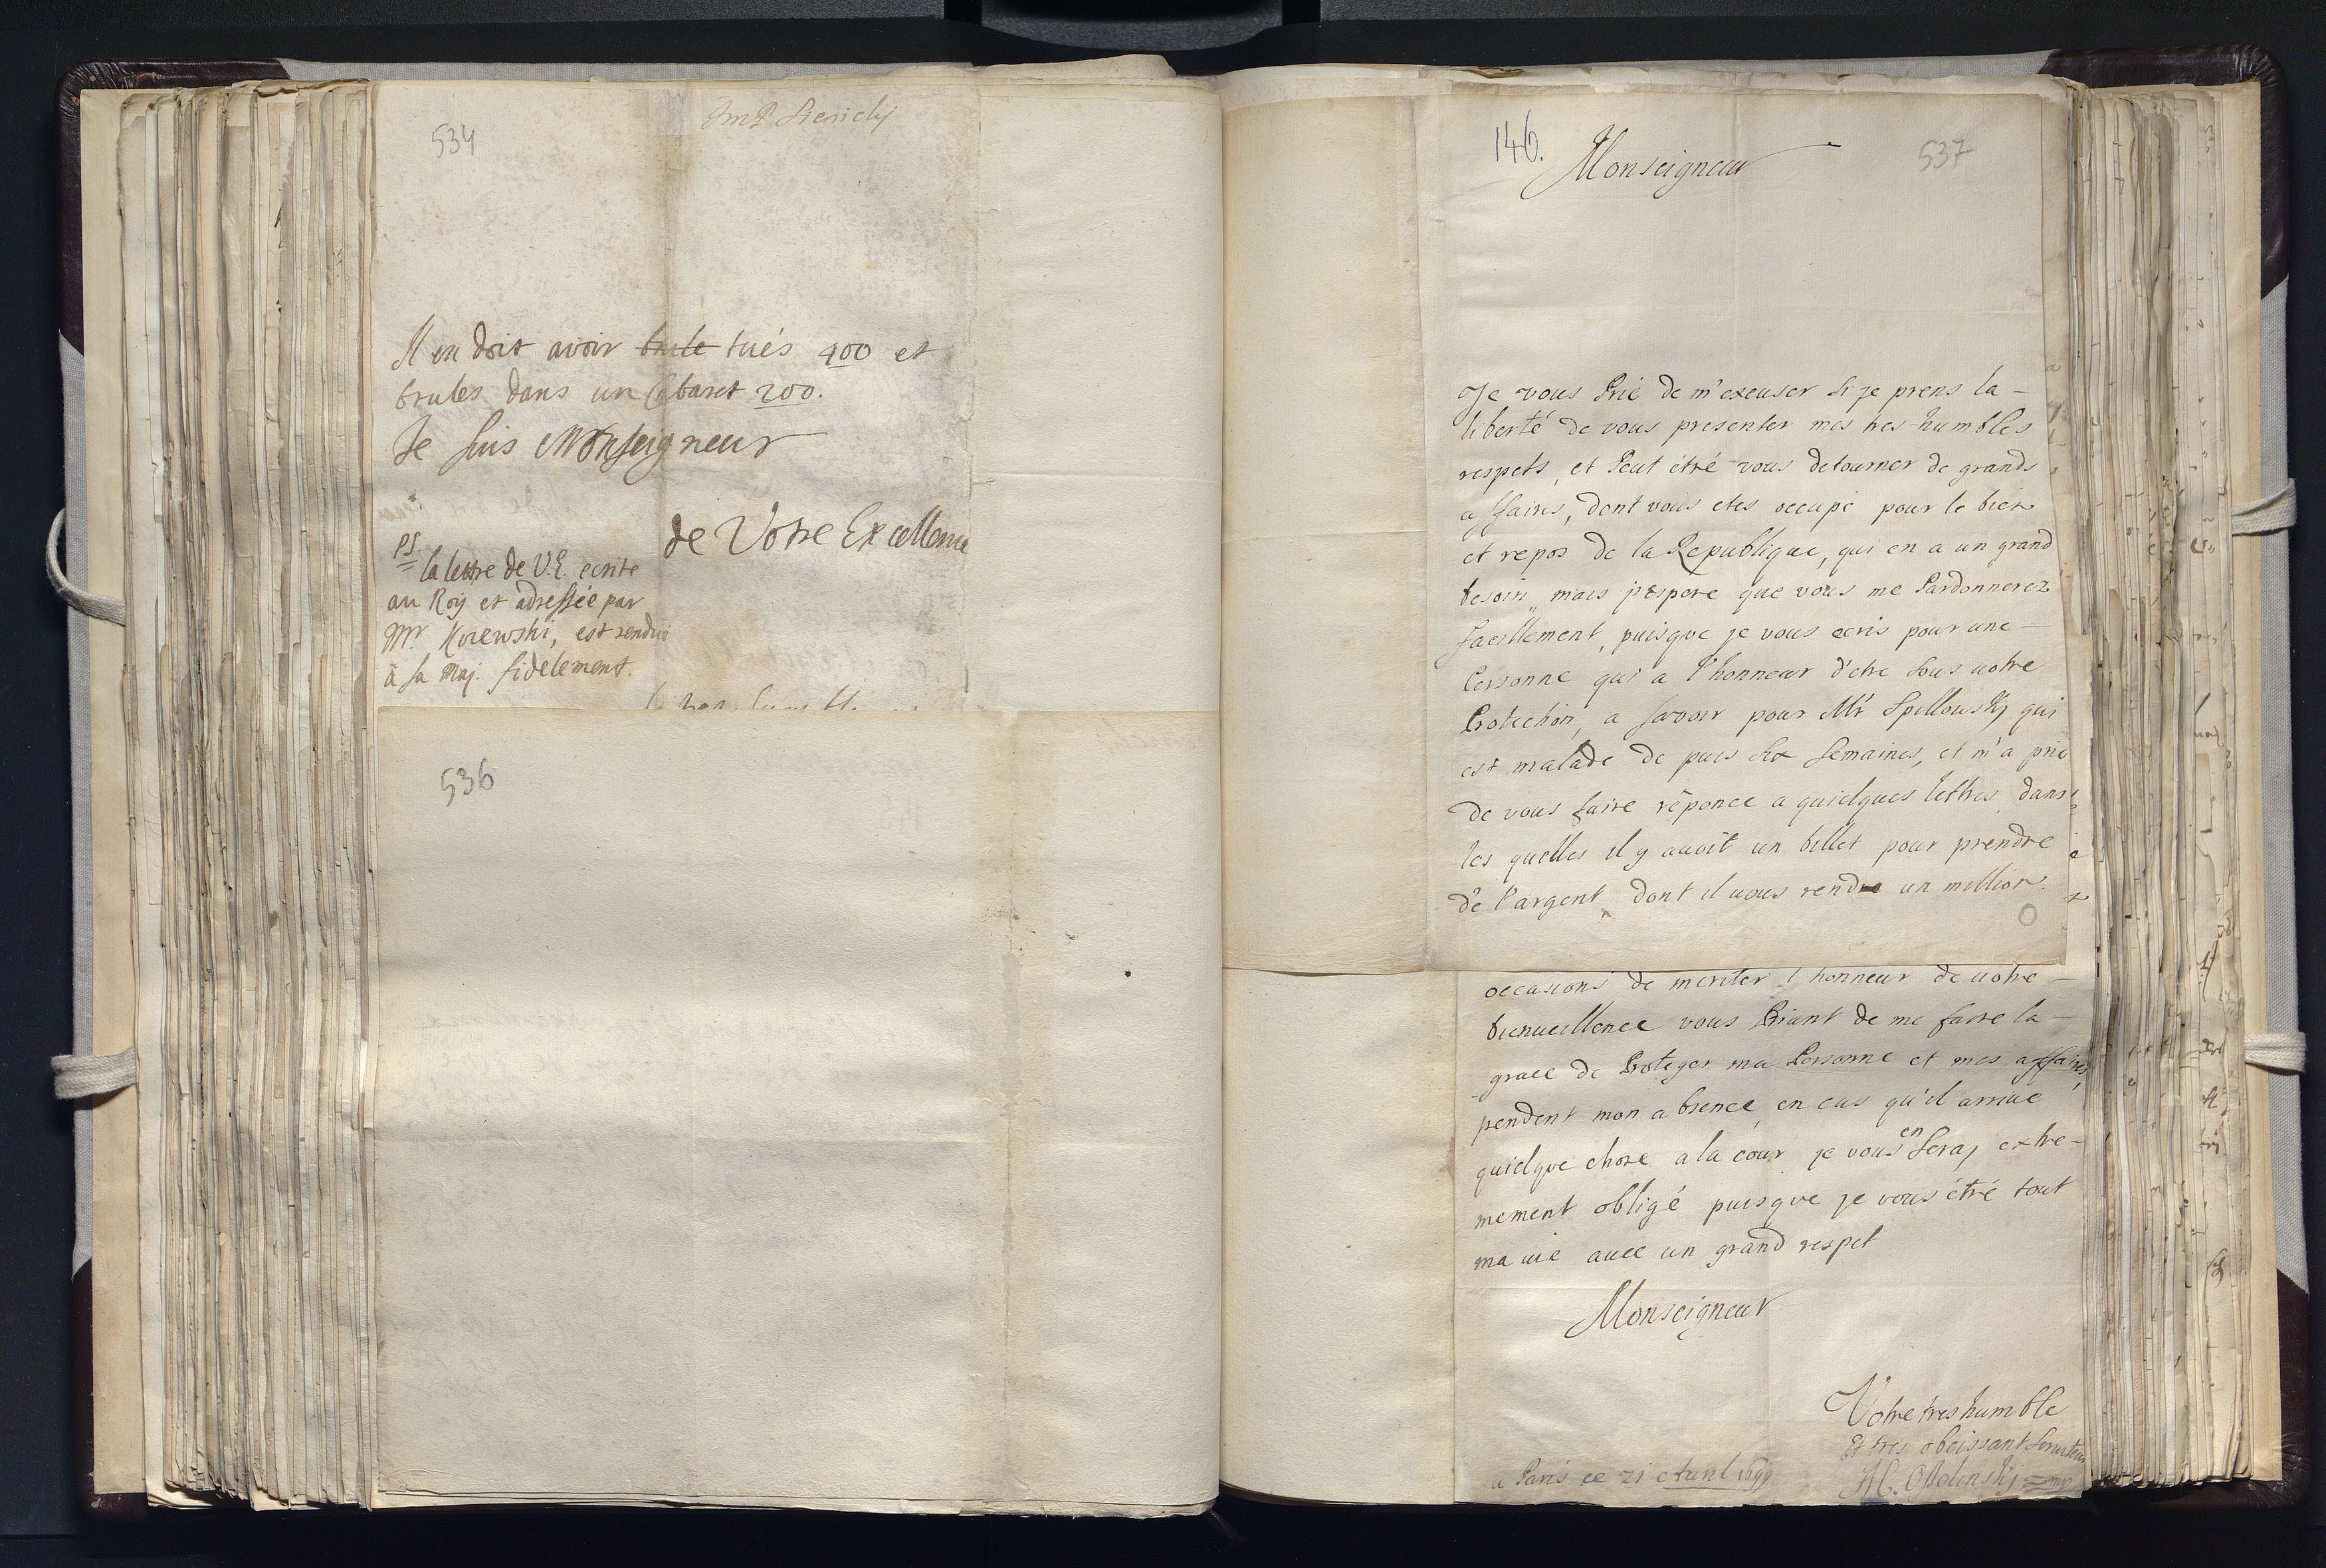 534
Il en doit avoir brule tués 400 et
brules dans un Cabaret 200.
Je suis Monseigneur
de Votre Excellence
PS.
la lettre de V.E. ecrite
au Roy et adressée par
Mr. Kurewski, est rendue
à sa Maj. fidelement.
536
146.
537
Monseigneur
Je vous Prie de m'excuser si je prens la -
liberté de vous presenter mes tres-humbles
respets, et Peut étré vous detourner de grands
affaires, dont vous etes occupé pour le bien
et repos de la Republique, qui en a un grand
besoin, mais j'espere que vous me Pardonnerez
facillement, puisque je vous ecris pour une -
Personne qui a l'honneur d'etre sous uotre
Protection, a savoir pour Mr Spillowskj qui
est malade de puis six semaines, et m'a prié
de vous faire réponce a quielques lettres dans
les quelles il y auoit un billet pour prendre
de l'argent, dont il uous rendre un million.
occasions de meriter l'honneur de uotre -
bienueillence vous Priant de me faire la -
grace de Proteger ma Personne et mes affaires,
pendent mon absence, en cas qu'il arriue
quielque chose a la cour je vous en seraj extre-
mement obligé puisque je vous étré tout
ma uie auec un grand respet
Monseigneur
Votre tres humble
Et tres obeissant seruiteur
a Paris ce 21 Auril 1699